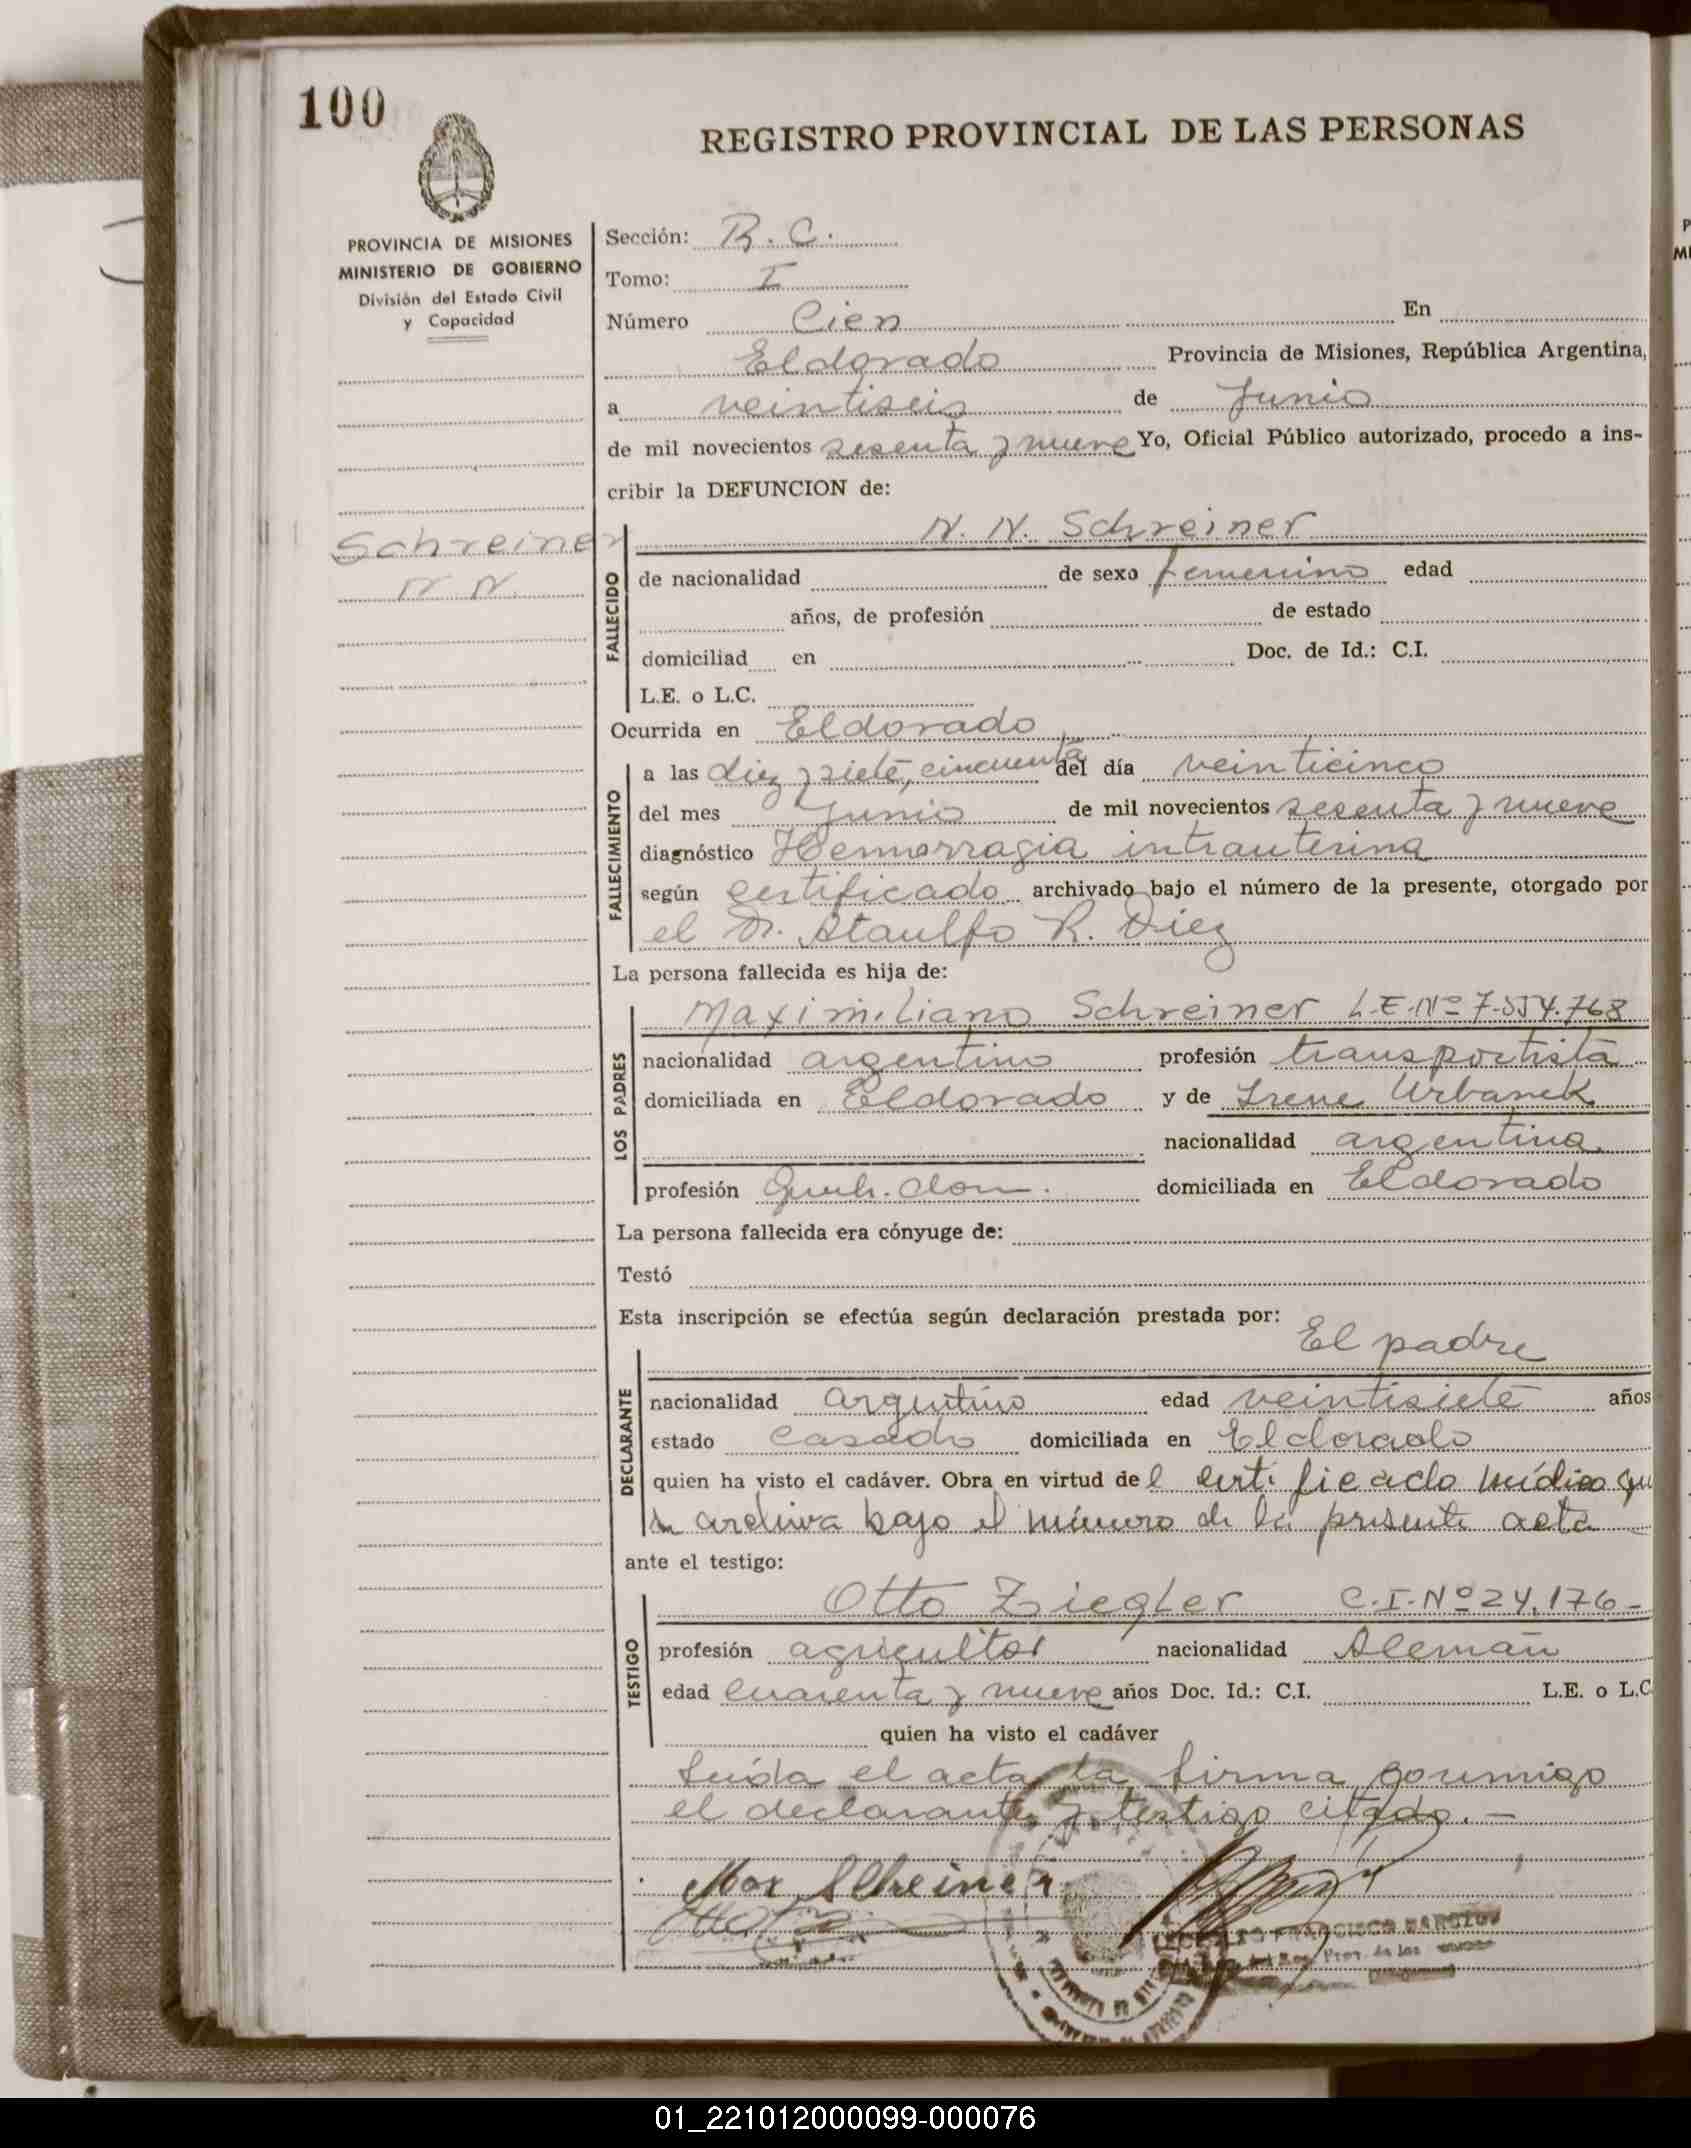 100
REGISTRO PROVINCIAL DE LAS PERSONAS
PROVINCIA DE MISIONES
MINISTERIO DE GOBIERNO
División del Estado Civil
y Capacidad
Schreiner
N. N.
Sección: B. C.
Tomo: I
Número Cien En
Eldorado Provincia de Misiones, República Argentina,
a veintiseis de Junio
de mil novecientos sesenta y nueve Yo, Oficial Público autorizado, procedo a ins-
cribir la DEFUNCION de:
FALLECIDO
N. N. Schreiner
de nacionalidad de sexo femenino edad
años, de profesión de estado
domiciliad en Doc. de Id.: C.I.
L.E. o L.C.
Ocurrida en Eldorado
FALLECIMIENTO
a las diez y siete, cincuenta del día veinticinco
del mes Junio de mil novecientos sesenta y nueve
diagnóstico Hemorragia intrauterina
según certificado archivado bajo el número de la presente, otorgado por
el Dr. Ataulfo R. Diez
La persona fallecida es hija de:
LOS PADRES
Maximiliano Schreiner L.E.Nº 7.554.768
nacionalidad argentino profesión transportista
domiciliada en Eldorado y de Irene Urbanek
nacionalidad argentina
profesión Queh. dom. domiciliada en Eldorado
La persona fallecida era cónyuge de:
Testó
Esta inscripción se efectúa según declaración prestada por:
El padre
DECLARANTE
nacionalidad argentino edad veintisiete años
estado casado domiciliada en Eldorado
quien ha visto el cadáver. Obra en virtud del certificado médico que
se archiva bajo el número de la presente acta
ante el testigo:
TESTIGO
Otto Ziegler C.I.Nº 24.176-
profesión agricultor nacionalidad Alemán
edad cuarenta y nueve años Doc. Id.: C.I. L.E. o L.C
quien ha visto el cadáver
Leída el acta la firma conmigo
el declarante y testigo citado. —
Max Schreiner
FRANCISCO
01_221012000099-000076